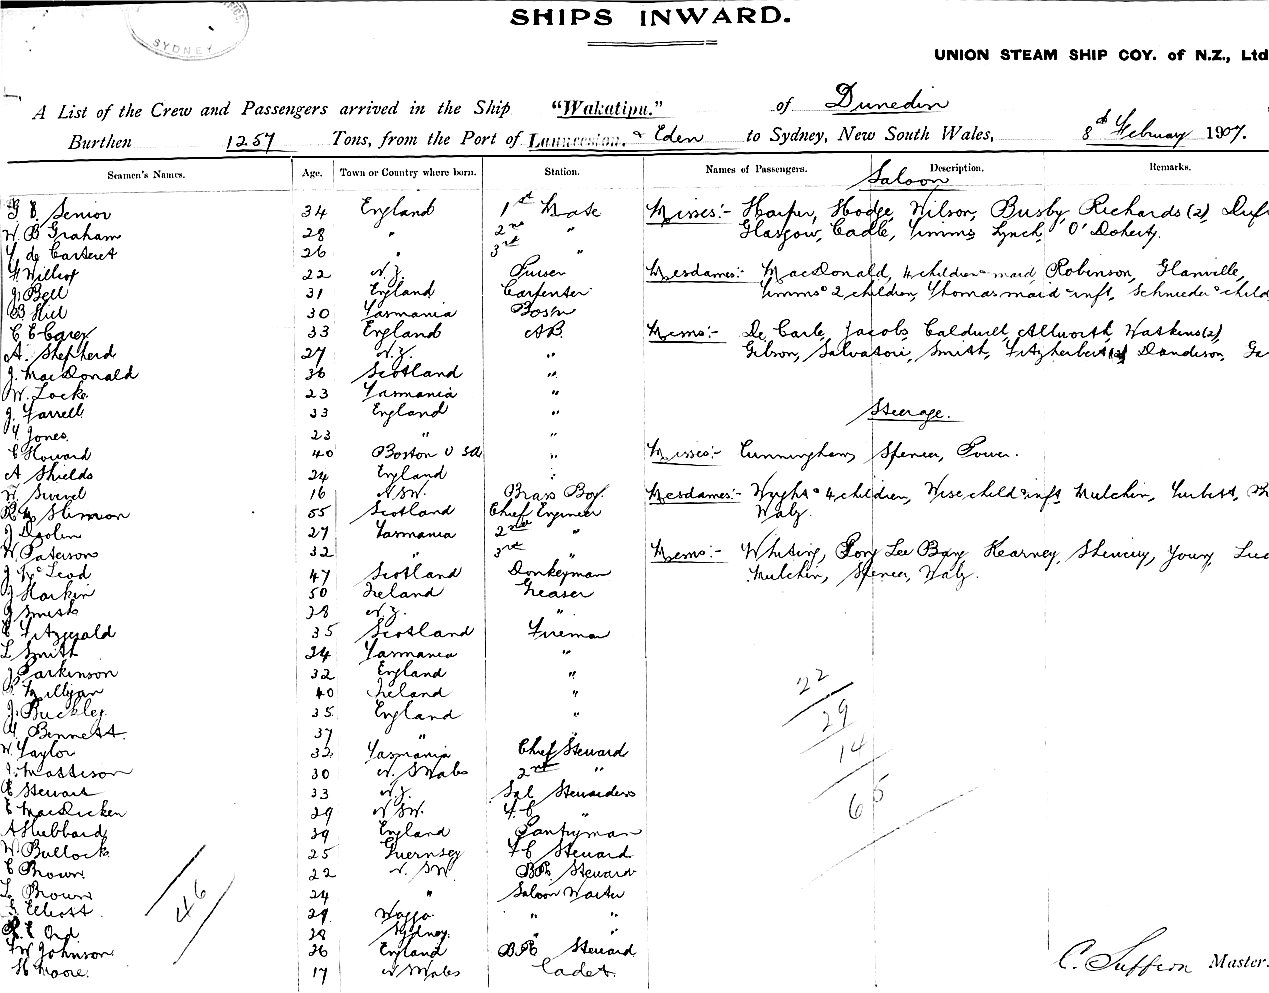 SYDNEY
SHIPS INWARD.
UNION STEAM SHIP COY. of N.Z., Ltd
A List of the Crew and Passengers arrived in the Ship "Wakatipu." of Dunedin
Burthen 1257 Tons, from the Port of Launceston. & Eden to Sydney, New South Wales, 8th February 1907.
Seamen's Names. Age. Town or Country where born. Station. Names of Passengers. Description. Remarks.
Saloon
Senior 34 England 1st Mate Misses:- Harper, Hodge, Wilson, Busby, Richards (2),
W. B Graham 28 " 2nd " Glasgow, Cadle, Timms, Lynch, O'Doherty.
de Carteret 26 " 3rd "
22 N.Z. Purser Mesdames:- MacDonald, 4 children & maid, Robinson, Glanville,
J. Bell 31 England Carpenter Timms & 2 children, Thomas maid & inft, Schnieder & child
B Hill 30 Tasmania Bosun
C E Carey 33 England AB. Mems:- De Carle, Jacobs, Caldwell, Allworth, Watkins (2),
A. Shepherd 27 N.Z. " Gibson, Salvatori, Smith, Fitzherbert Dandison,
J. MacDonald 36 Scotland "
W. Locke. 23 Tasmania "
J. Farrell 33 England " Steerage.
Jones. 23 " "
C Howard 40 Boston U SA " Misses:- Cunningham, Spencer, Power.
A Shields 24 England "
W. 16 N.S.W. Brass Boy. Mesdames:- Wyght & 4 children, Wise child & inft, Mulchin,
Stimson 55 Scotland Chief Engineer Walz.
J 27 Tasmania 2nd "
W. Paterson 32 " 3rd " Mems:- Whiting, Pong Lee Bang, Kearney, Young,
J. McLeod 47 Scotland Donkeyman Mulchin, Spencer, Walz.
J Harkin 50 Ireland Greaser
J Smith 28 N.Z. "
Fitzgerald 35 Scotland Fireman
L Smith 24 Tasmania "
J. Parkinson 32 England " 22
P. Milligan 40 Ireland "
J. Buckley 35 England " 29
Bennett. 37 " "
W. Taylor 32 Tasmania Chief Steward 14
J. Mattison 30 N. S Wales 2nd "
Stewart 33 N.Z. Sal Stewardess 65
E MacDicken 29 N SW. F.C "
A Hubbard 39 England Pantryman
W. Bullock 25 Guernsey F C Steward
C Brown 22 N. SW. BR. Steward
L. Brown 24 " Saloon Waiter
Elliott 29 Wagga " " 46
E Ord 28 Sydney.
W Johnson 26 England BR Steward
H Moore. 17 N S Wales Cadet
C. Suffern Master.